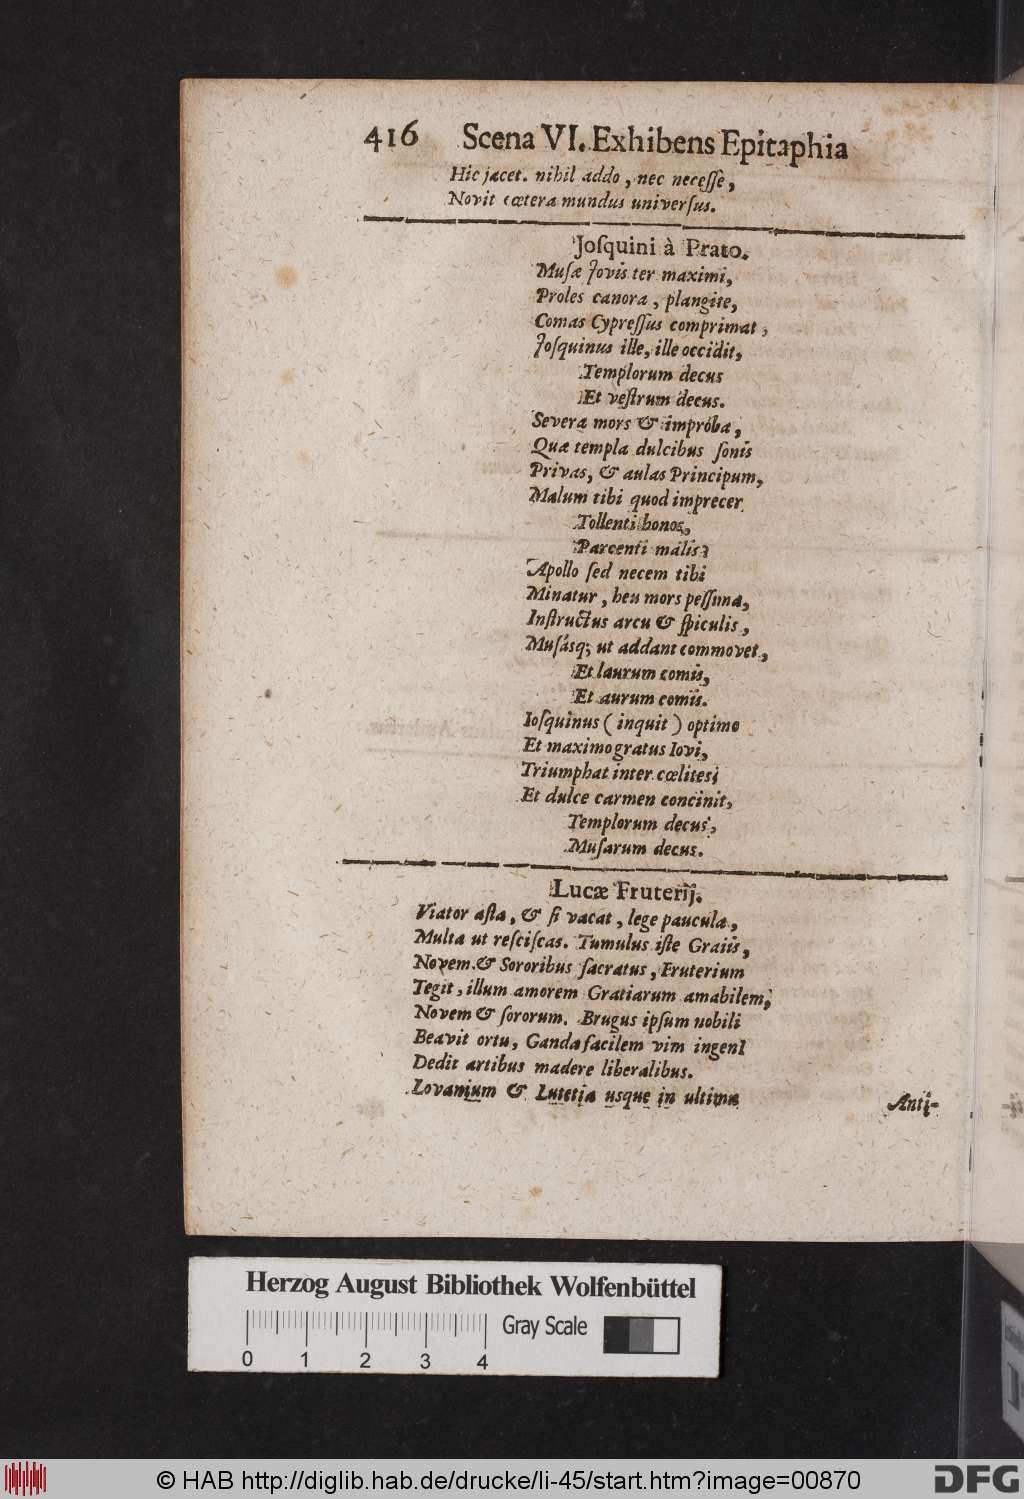 416 Scena VI. Exhibens Epitaphia
Hic jacet. nihil addo, nec necesse,
Novit cœtera mundus universus.
Josquini à Prato.
Musæ Jovis ter maximi,
Proles canora, plangite,
Comas Cypressus comprimat,
Josquinus ille, ille occidit,
Templorum decus
Et vestrum decus.
Severa mors & improba,
Quæ templa dulcibus sonis
Privas, & aulas Principum,
Malum tibi quod imprecer
Tollenti bonos,
Parcenti malis?
Apollo sed necem tibi
Minatur, heu mors pessima,
Instructus arcu & spiculis,
Musásq; ut addant commovet,
Et laurum comis,
Et aurum comis.
Iosquinus (inquit) optimo
Et maximo gratus Iovi,
Triumphat inter cœlites;
Et dulce carmen concinit,
Templorum decus,
Musarum decus.
Lucæ Fruterij.
Viator asta, & si vacat, lege paucula,
Multa ut resciscas. Tumulus iste Graiis,
Novem & Sororibus sacratus, Fruterium
Tegit, illum amorem Gratiarum amabilem,
Novem & sororum. Brugus ipsum nobili
Beavit ortu, Ganda facilem vim ingenI
Dedit artibus madere liberalibus.
Lovanium & Lutetia usque in ultima
Anti-
Herzog August Bibliothek Wolfenbüttel
Gray Scale
0 1 2 3 4
© HAB http://diglib.hab.de/drucke/li-45/start.htm?image=00870
DFG